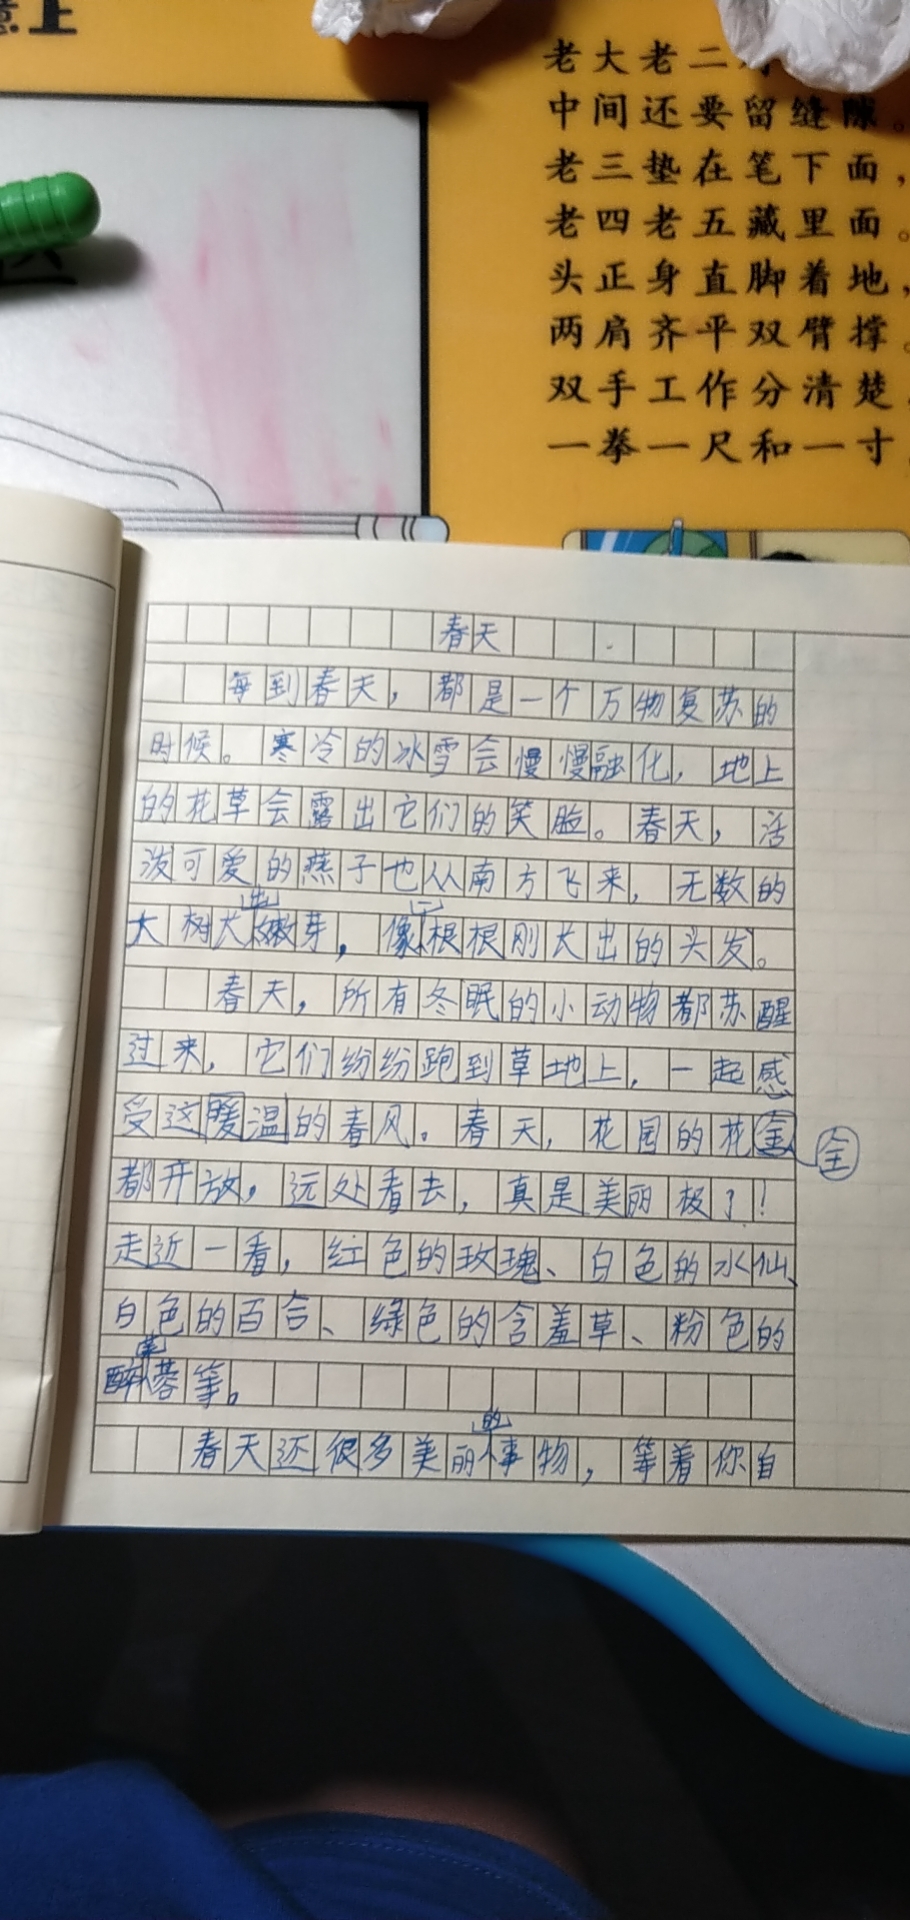 意上
老大老二
中间还要留缝隙。
老三垫在笔下面，
老四老五藏里面。
头正身直脚着地，
两肩齐平双臂撑。
双手工作分清楚
一拳一尺和一寸
春天
每到春天，都是一个万物复苏的
时候。寒冷的冰雪会慢慢融化，地上
的花草会露出它们的笑脸。春天，活
泼可爱的燕子也从南方飞来，无数的
大树长出嫩芽，像一根根刚长出的头发。
春天，所有冬眠的小动物都苏醒
过来，它们纷纷跑到草地上，一起感
受这暖温的春风。春天，花园的花全
都开放，远处看去，真是美丽极了！
走近一看，红色的玫瑰、白色的水仙、
白色的百合、绿色的含羞草、粉色的
醉芙蓉等。
春天还很多美丽的事物，等着你自